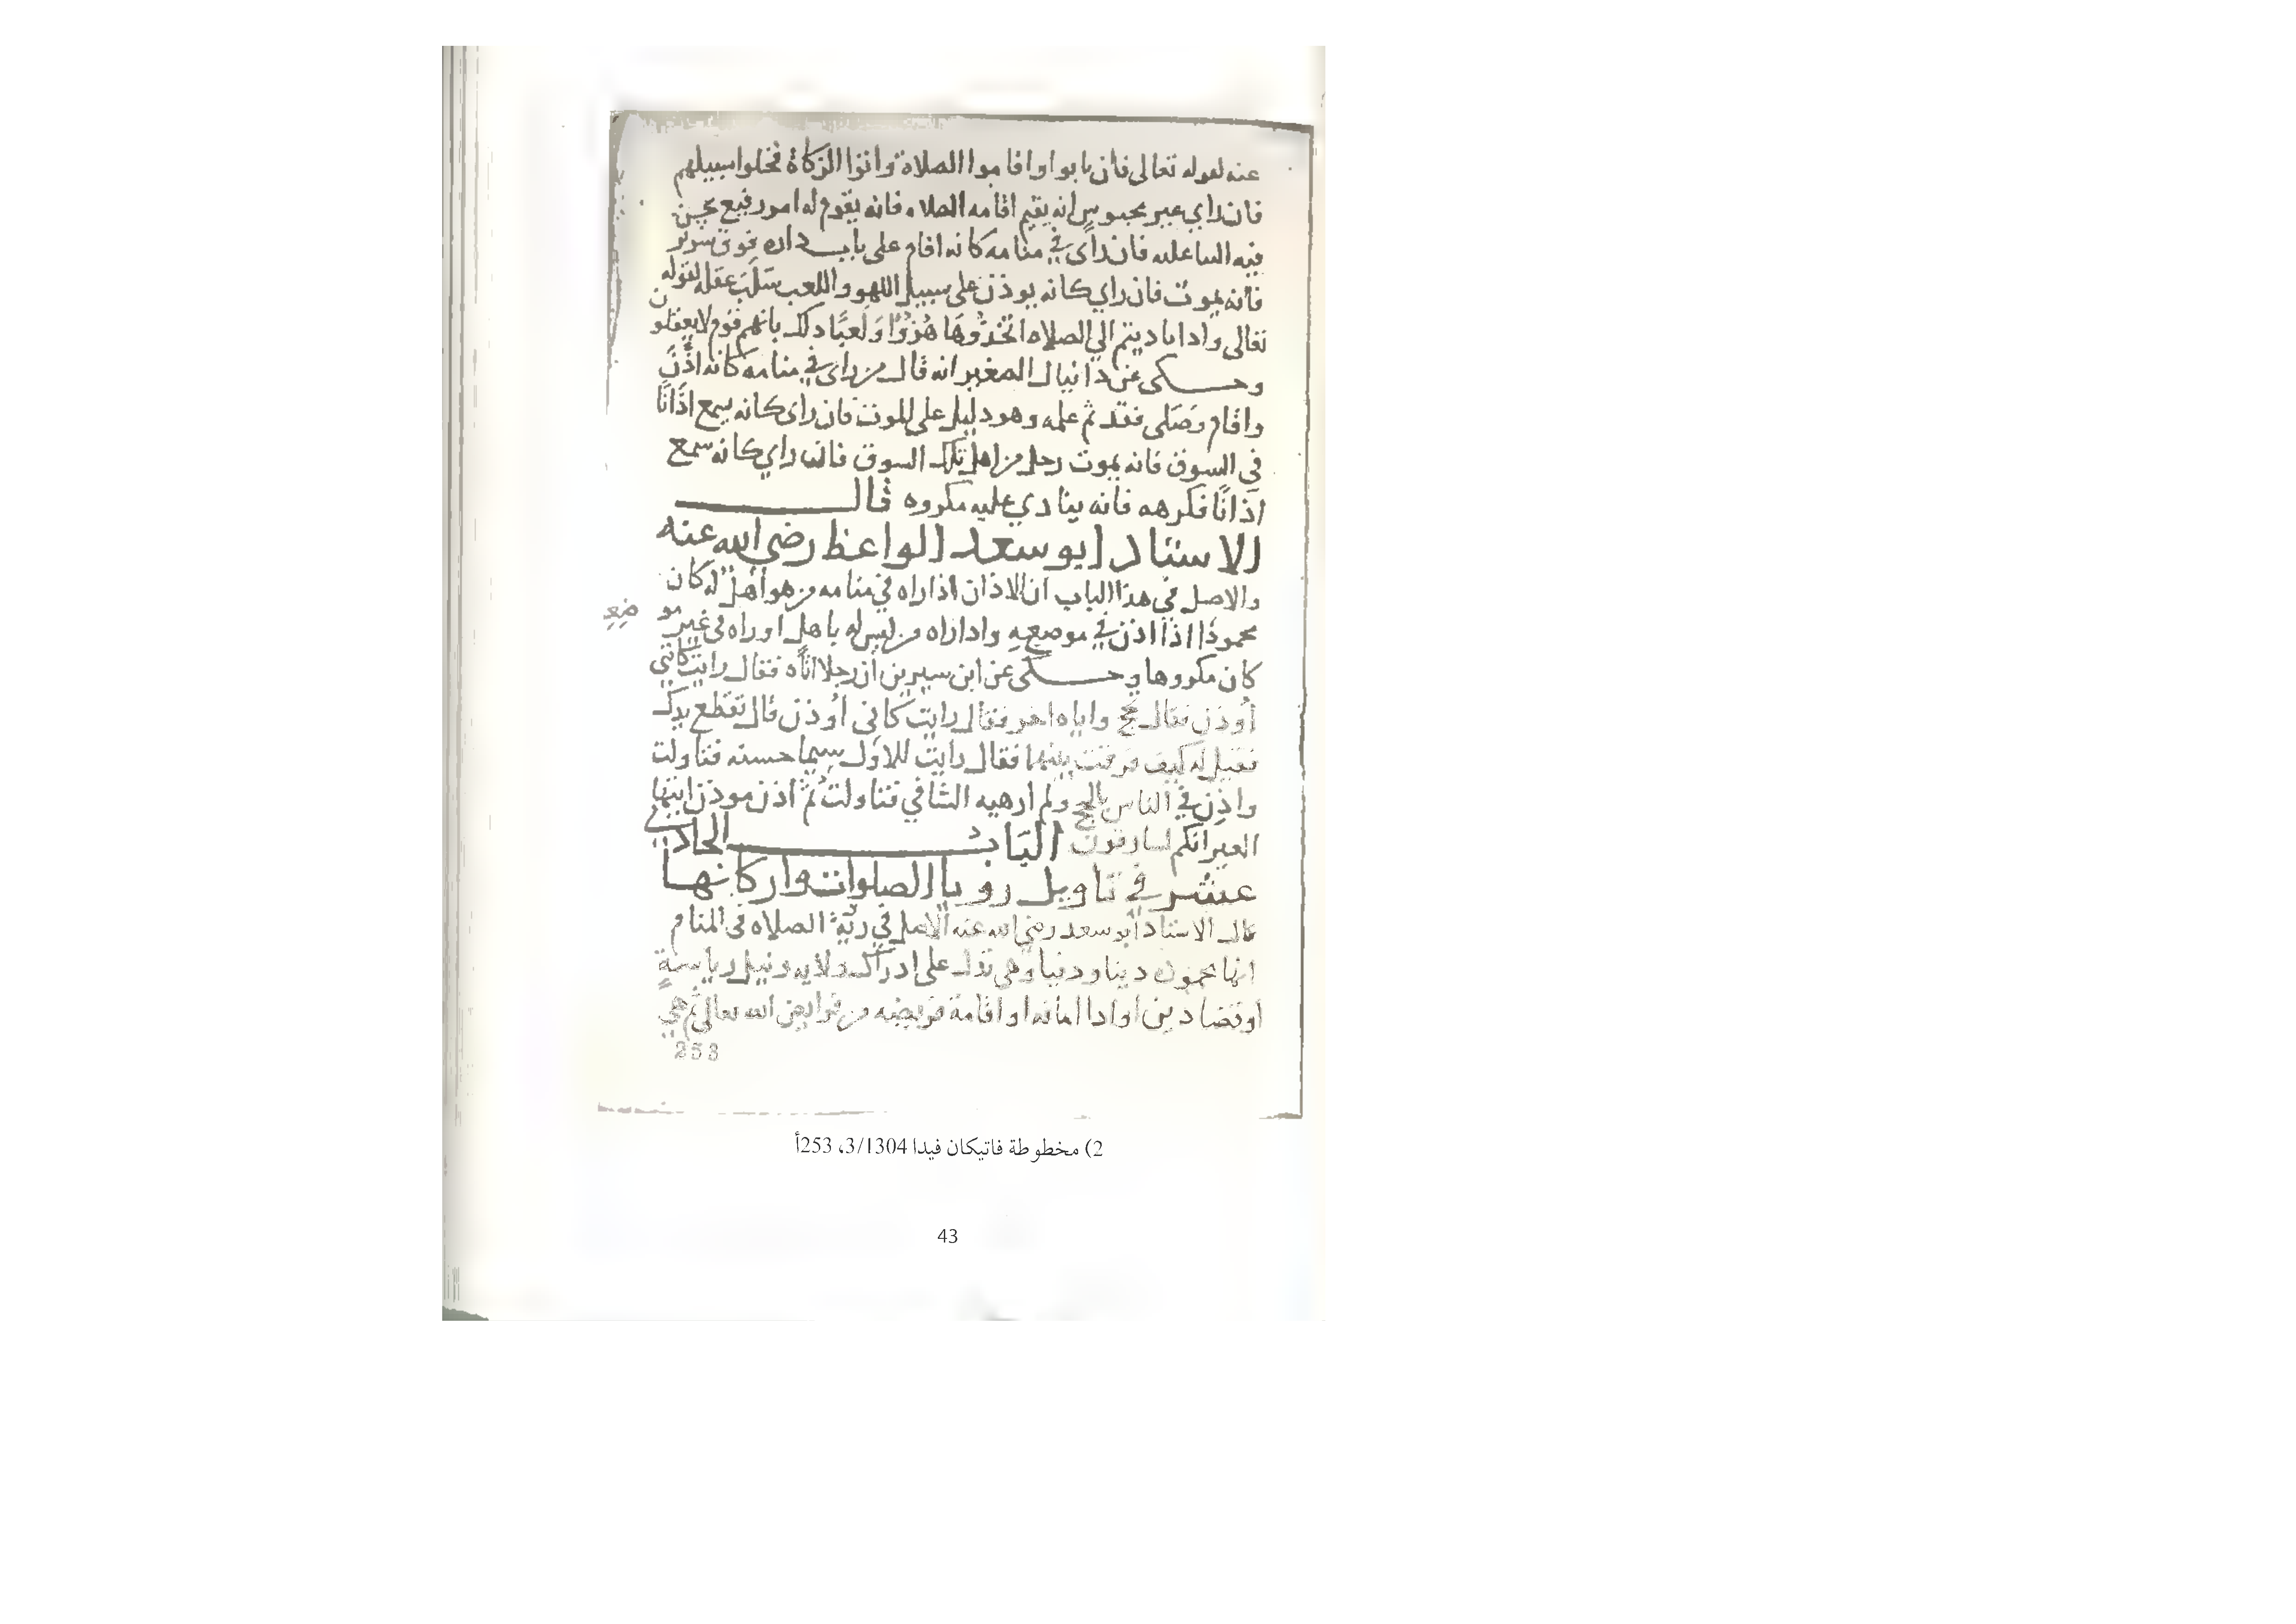 عنه لقوله تعالى فان تابوا واقاموا الصلاة واتوا الزكاة فخلوا سبيلهم
فان راي غير محبوس انه يقيم اقامه الصلاه فانه يقوم له امر رفيع يحسن
فيه الثنا عليه فان رأى في منامه كانه اقام على باب داره فوق سرير
فانه يموت فان راي كانه يوذن على سبيل اللهو واللعب سلب عقله لقوله
تعالى واذا ناديتم الي الصلاه اتخذوها هزوًا ولعبًا ذلك بانهم قوم لا يعقلون
وحكى عن دانيال المعبر انه قال من راى في منامه كانه اذن
واقام وصلى فقد تم عمله وهو دليل على الموت فان راى كانه يسمع اذانًا
في السوق فانه يموت رجل من اهل تلك السوق فان راي كانه سمع
اذانًا فكرهه فانه ينادي عليه مكروه قال
الاستاد ابو سعد الواعظ رضي الله عنه
والاصل في هذا الباب ان الاذان اذا راه في منامه من هو اهل له كان
محمودًا اذا اذن في موضعه واذا راه من ليس له باهل او راه في غير مو ضعه
كان مكروها وحكى عن ابن سيرين ان رجلا اتاه فقال رايت كانني
أوذن فقال تحج واتاه اخر فقال رايت كاني أوذن قال تقطع يدك
فقيل له كيف فرقت بينهما فقال رايت للاول سيما حسنه فتاولت
واذن في الناس بالحج ولم ار هيه الثاني فتاولت ثم اذن موذن ايتها
العير انكم لسارقون الباب الحادي
عشر في تاويل رويا الصلوات واركانها
قال الاستاد أبو سعد رضي الله عنه الاصل في ريّة الصلاه في المنام
انها محمودة دينا ودنيا وهي تدل على ادراك ولايه ونيل رياسة
او قضا دين او ادا امانه او اقامة فريضه من فرايض الله تعالى ثم هي
253
2) مخطوطة فاتيكان فيدا 3/1304، 253أ
43